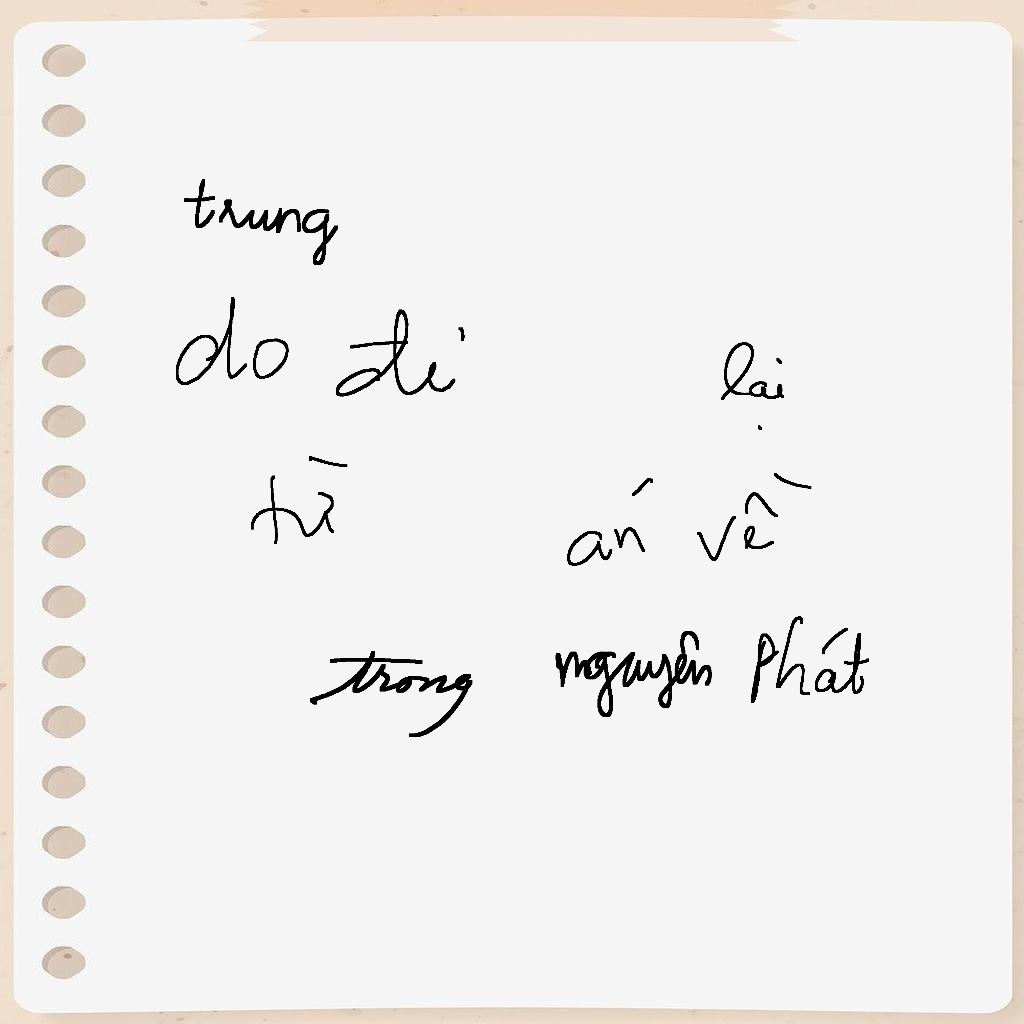 trung
do đi lại
từ án về
trong nguyên Phát